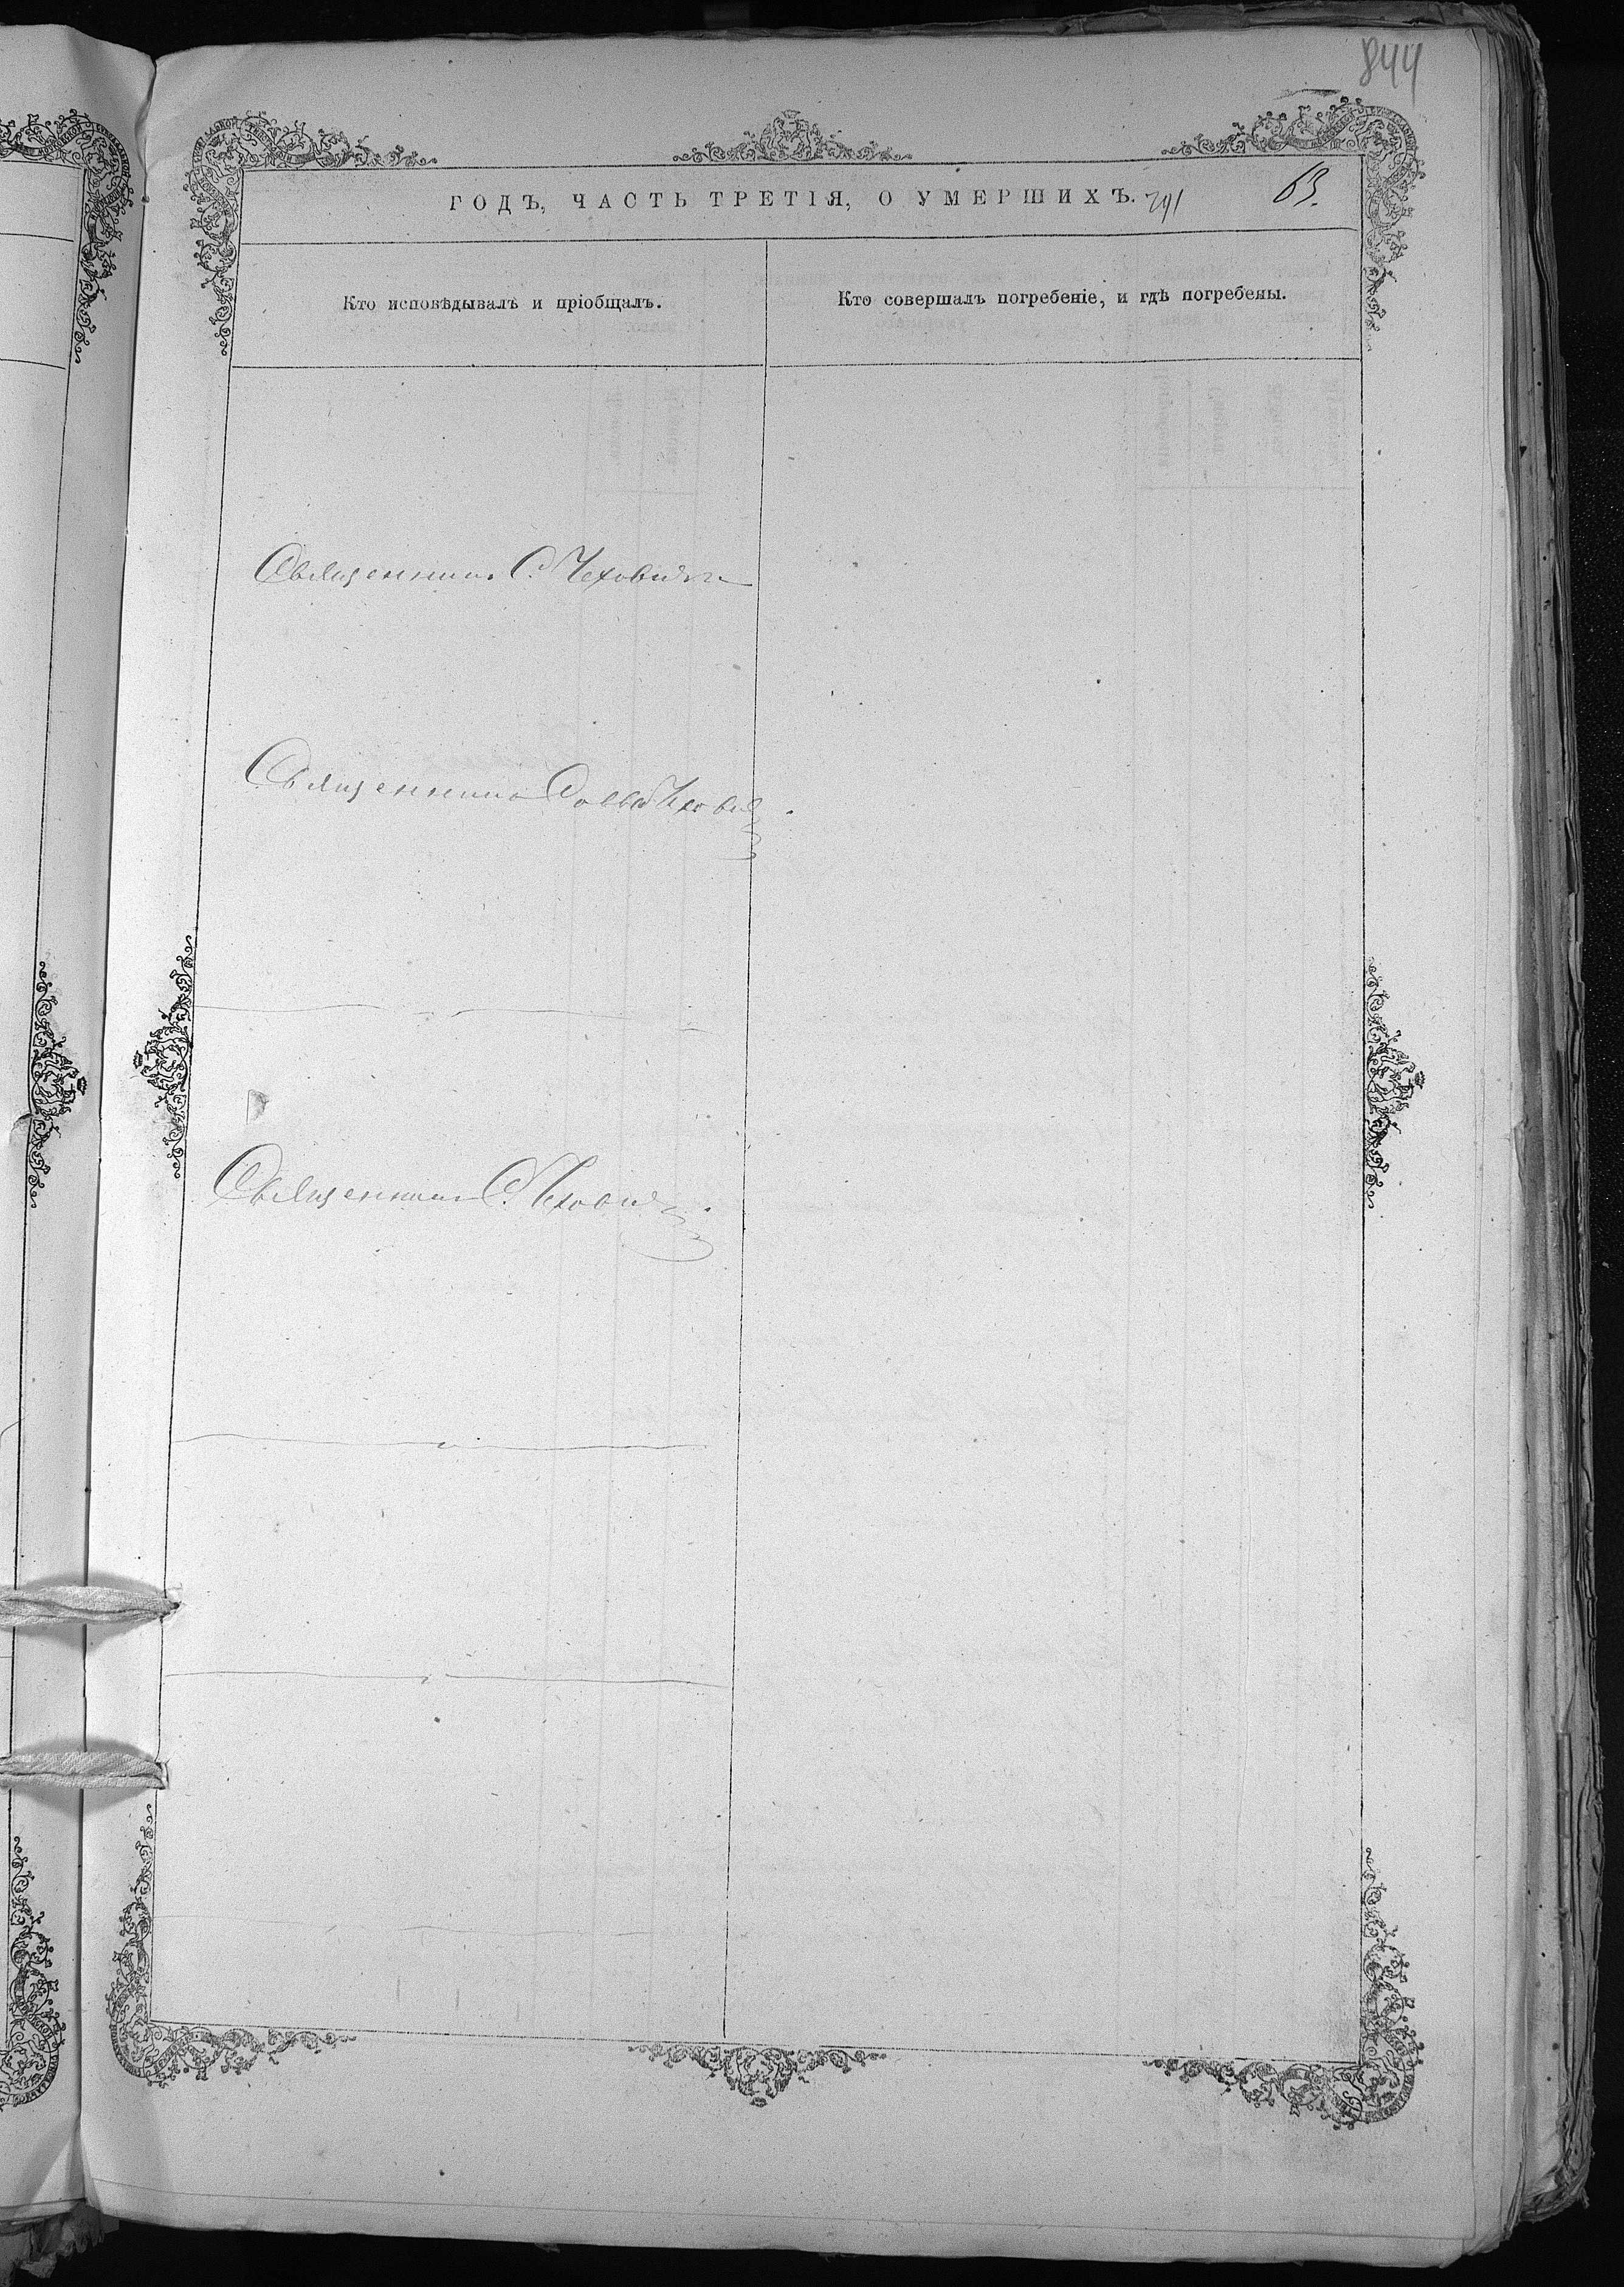 844
ГОДЪ, ЧАСТЬ ТРЕТІЯ, О УМЕРШИХЪ. 291 63.
Кто исповѣдывалъ и пріобщалъ.
Кто совершалъ погребеніе, и гдѣ погребены.
Священникъ С. Чеховичъ
Священникъ Чехович
Священникъ С. Чехович